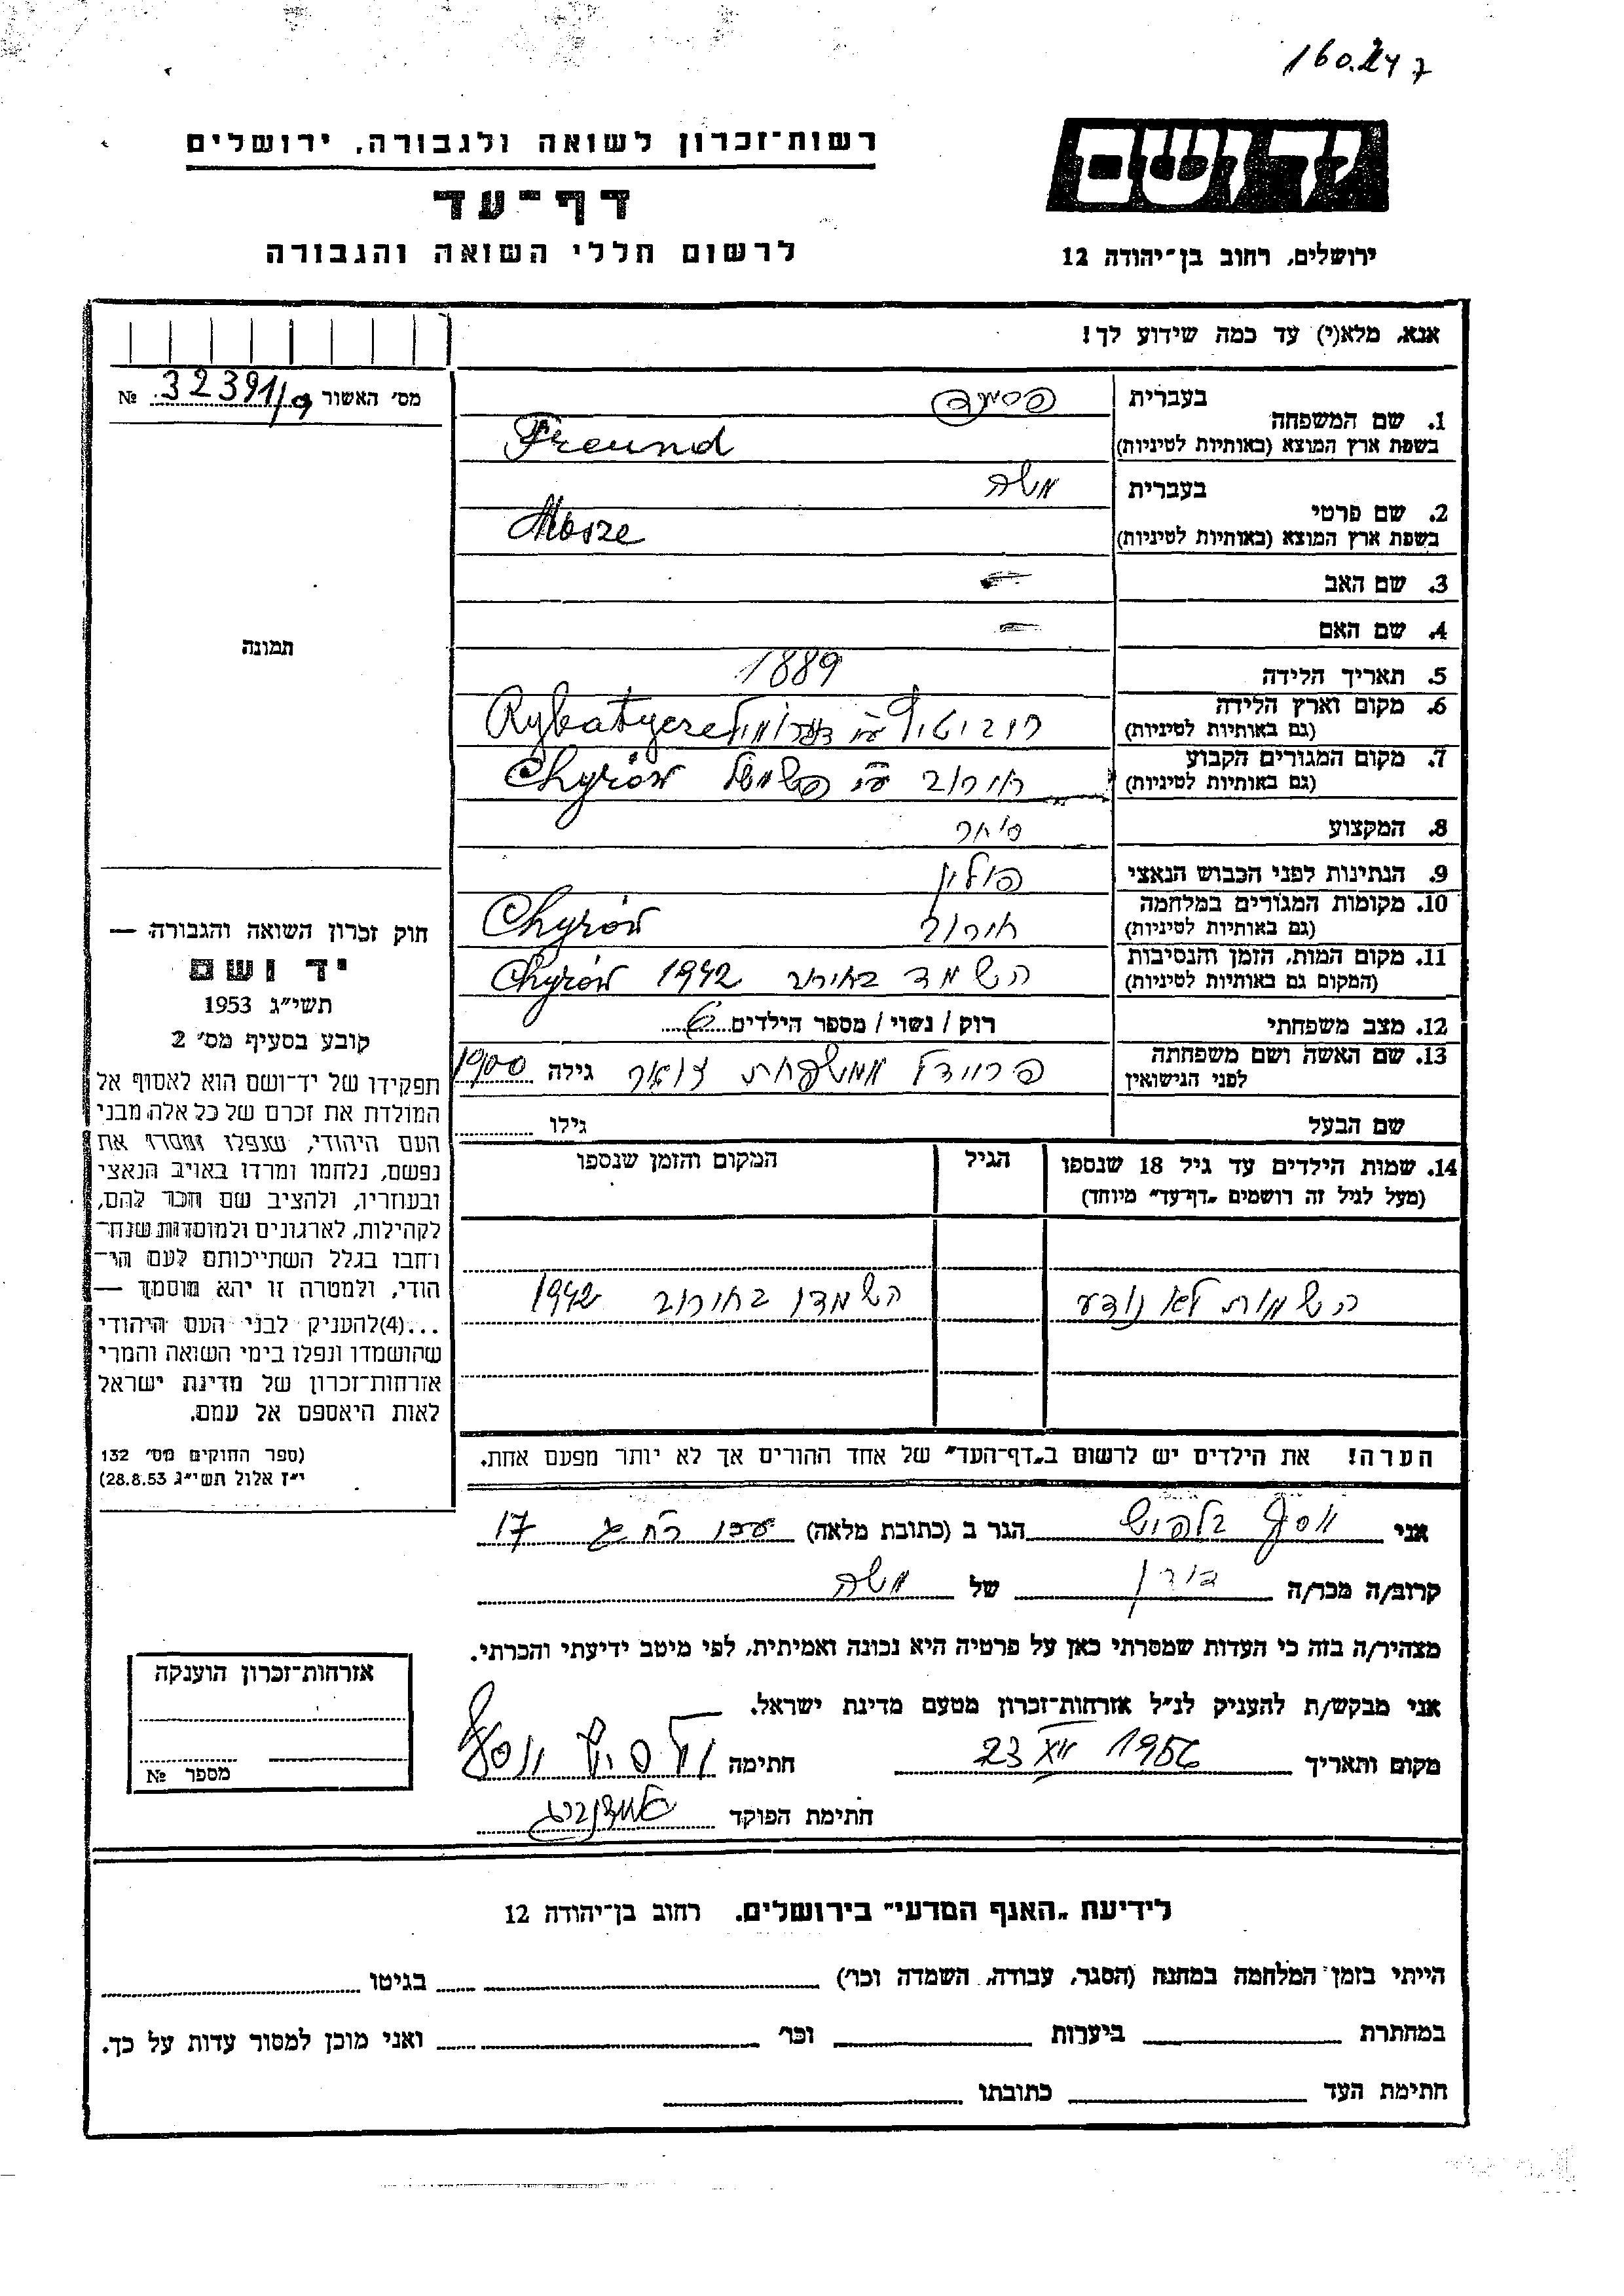 160.247
רשות־זכרון לשואה ולגבורה, ירושלים
יד ושם
דף־עד
לרשום חללי השואה והגבורה
ירושלים, רחוב בן־יהודה 12
אנא, מלא(י) עד כמה שידוע לך!
מס׳ האשור № 32391/
1. שם המשפחה
בעברית
בשפת ארץ המוצא (באותיות לטיניות) Freund
2. שם פרטי
בעברית משה
בשפת ארץ המוצא (באותיות לטיניות) Mosze
3. שם האב —
4. שם האם —
5. תאריך הלידה 1889
6. מקום וארץ הלידה
(גם באותיות לטיניות) Rybatycze
7. מקום המגורים הקבוע
(גם באותיות לטיניות) חירוב ע״י Chyrów
8. המקצוע סוחר
9. הנתינות לפני הכבוש הנאצי פולין
10. מקומות המגורים במלחמה
(גם באותיות לטיניות) חירוב Chyrów
11. מקום המות, הזמן והנסיבות
(המקום גם באותיות לטיניות) השמד בחירוב 1942 Chyrów
12. מצב משפחתי רוק / נשוי / מספר הילדים
13. שם האשה ושם משפחתה
לפני הנישואין פריידל ממשפחת גילה 1900
שם הבעל גילו
14. שמות הילדים עד גיל 18 שנספו
(מעל לגיל זה רושמים „דף־עד״ מיוחד)
הגיל
המקום והזמן שנספו
השמות לא נודע השמדו בחירוב 1942
הערה! את הילדים יש לרשום ב„דף־העד״ של אחד ההורים אך לא יותר מפעם אחת.
תמונה
חוק זכרון השואה והגבורה —
יד ושם
תשי״ג 1953
קובע בסעיף מס׳ 2
תפקידו של יד־ושם הוא לאסוף אל
המולדת את זכרם של כל אלה מבני
העם היהודי, שנפלו ומסרו את
נפשם, נלחמו ומרדו באויב הנאצי
ובעוזריו, ולהציב שם וזכר להם,
לקהילות, לארגונים ולמוסדות שנח־
רבו בגלל השתייכותם לעם הי־
הודי, ולמטרה זו יהא מוסמך —
...(4)להעניק לבני העם היהודי
שהושמדו ונפלו בימי השואה והמרי
אזרחות־זכרון של מדינת ישראל
לאות היאספם אל עמם.
(ספר החוקים מס׳ 132
י״ז אלול תשי״ג 28.8.53)
אני יוסף הגר ב (כתובת מלאה) עכו 17
קרוב/ה מכר/ה של משה
מצהיר/ה בזה כי העדות שמסרתי כאן על פרטיה היא נכונה ואמיתית, לפי מיטב ידיעתי והכרתי.
אני מבקש/ת להעניק לנ״ל אזרחות־זכרון מטעם מדינת ישראל.
מקום ותאריך 23 XII 1956 חתימה יוסף
חתימת הפוקד
אזרחות־זכרון הוענקה
מספר №
לידיעת „האגף המדעי״ בירושלים, רחוב בן־יהודה 12
הייתי בזמן המלחמה במחנה (הסגר, עבודה, השמדה וכו׳) בגיטו
במחתרת ביערות וכו׳ ואני מוכן למסור עדות על כך.
חתימת העד כתובתו